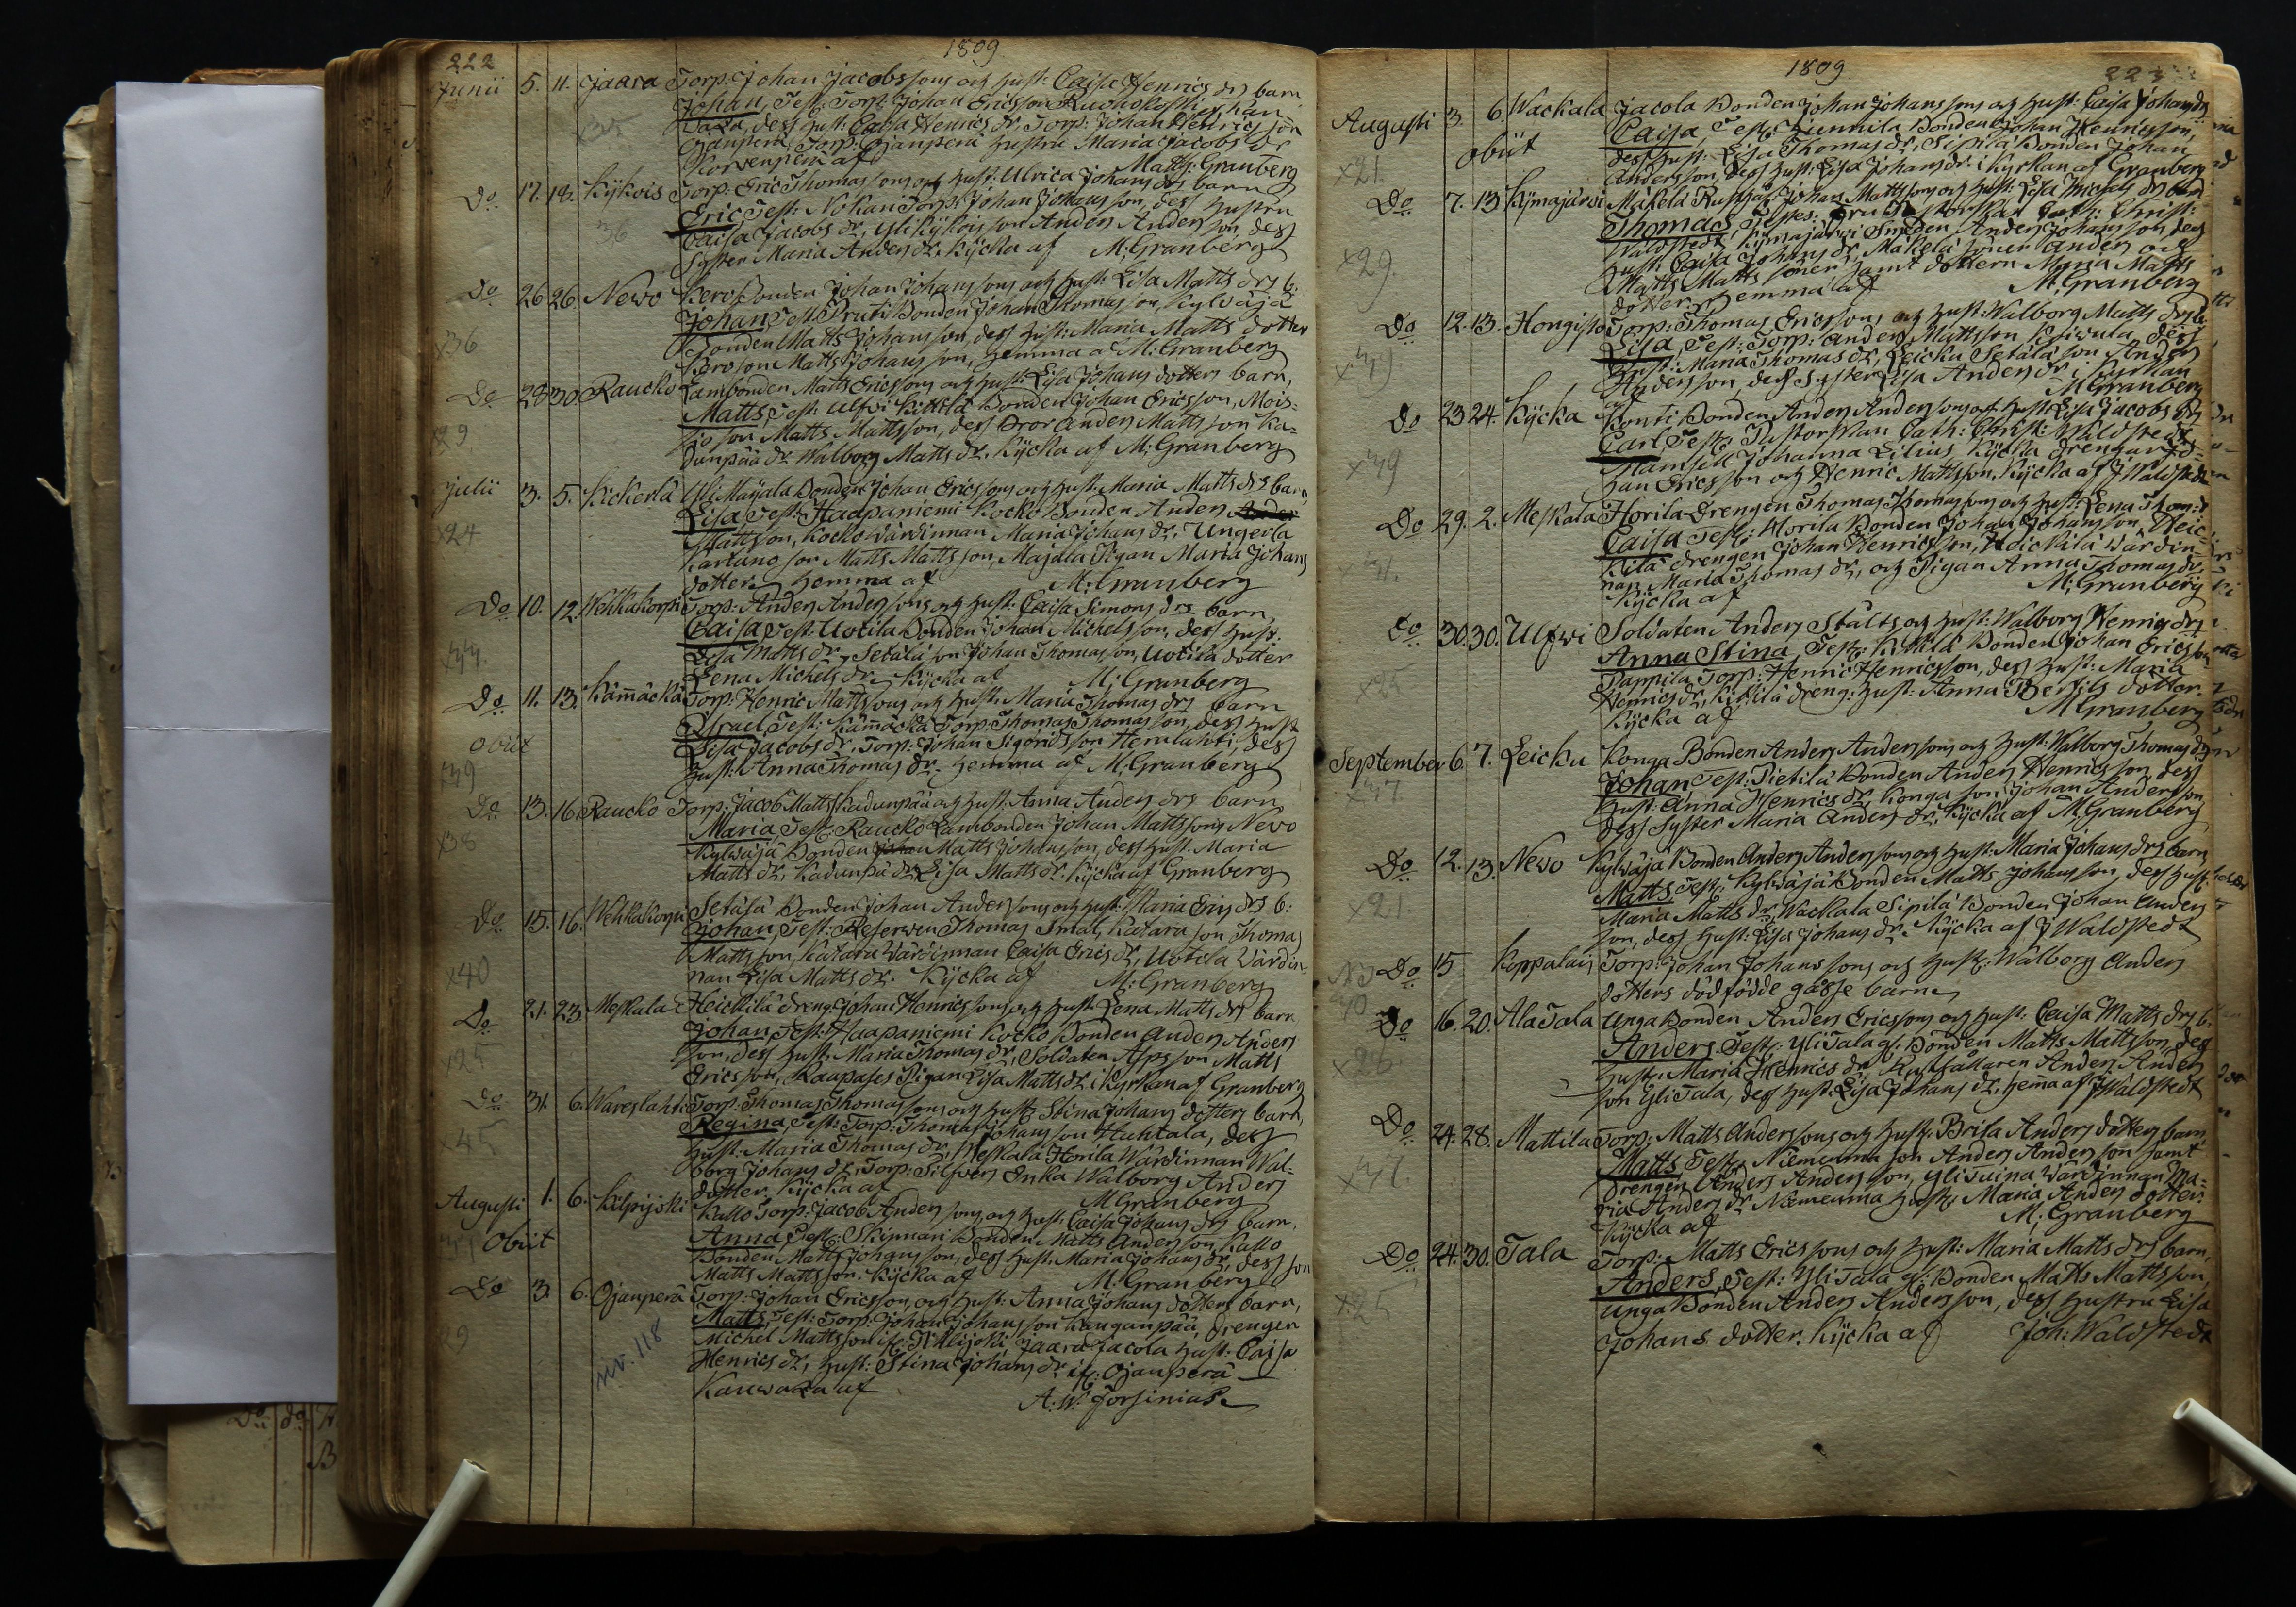 222
1809
Junii 5. 11. Jaara Torp: Johan Jacobssons och hust: Caisa Henrics drs barn
Johan, Test: Torp: Johan Ericsson
dess hust: Caisa Henrics dr, Torp: Johan Henrics son
Ojanperä, Torp: Ojanperä hustru Maria Jacobs dr
Korvenperä af Matth: Granberg
Do 17. 18. Kÿkois Torp: Eric Thomas sons och hust: Ulrica Johans drs barn
Eric Test: Nohari Torp: Johan Johansson, dess hustru
Caisa Jacobs dr, Ylikÿkois son Anders Andersson, dess
Syster Maria Anders dr. Kÿcka af M: Granberg
Do 26 26. Newo Kero Bonden Johan Johans sons och hust: Lisa Matts drs b:
Johan, Test: Pruti Bonden Johan Thomasson, Kylväjä
Bonden Matts Johansson, dess hust: Maria Matts dotter
Kero son Matts Johansson, hemma af M: Granberg
Do 29 30. Raucko Lambonden Matts Ericssons och hust: Lisa Johans dotters barn,
Matts, Test: Ulfvi Kittilä Bonden Johan Ericsson, Mois=
io son Matts Mattsson, dess Bror Anders Mattsson Ka=
dunpää dr. Walborg Matts dr. Kÿcka af M: Granberg
Julii 3. 5. Kickerlä Yli Maijala Bonden Johan Ericssons och hust: Maria Matts drs barn
Lisa, Test: Haapaniemi Kocko Bonden Anders
Mattsson, Kocko Wärdinnan Maria Johans dr, Ungerla
Kartano son Matts Mattsson, Majala Pigan Maria Johans
dotter, hemma af M: Granberg
Do 10. 12. Wehkakorpi Torp: Anders Anderssons och hust: Caisa Simons drs barn,
Caisa, Test: Uotila Bonden Johan Michelsson, dess hust:
Lisa Matts dr, Setälä son Johan Thomasson, Uotila dotter
Lena Michels dr, Kÿcka af M: Granberg
Do 11. 13. Kämäckä Torp: Henric Mattssons och hust: Maria Thomas drs barn
obiit
Israel, Test: Kämäckä Torp: Thomas Thomasson, dess hust:
Lisa Jacobs dr, Torp: Johan Sigfridsson Heralahti, dess
hust: Anna Thomas dr. hemma af M: Granberg
Do 13. 16. Raucko Torp: Jacob Matts Kadunpää och hust: Anna Anders drs barn,
Maria, Test: Raucko Lambonden Johan Mattssons, Newo
Kylwäjä Bonden Matts Johansson, dess hust: Maria
Matts dr, Kadunpä dr. Lisa Matts dr. Kÿcka af Granberg
Do 15. 16. Wehkakorpi Setälä Bonden Johan Anderssons och hust: Maria Erics drs b:
Johan, Test: Reserven Thomas Smal, Katara son Thomas
Mattsson, Katara Wärdinnan Caisa Erics dr, Uotila Wärdin=
nan Lisa Matts dr. Kÿcka af M: Granberg
Do 21. 23. Meskala Heickilä dreng: Johan Henricssons och hust: Lena Matts drs barn
Johan, Test: Haapaniemi Kocko Bonden Anders Anders
son, dess hust: Maria Thomas dr, Soldaten Asps son Matts
Ericsson, Raapases Pigan Lisa Matts dr. i Kyrkan af Granberg
Do 31. 6. Wareslahti Torp: Thomas Thomassons och hust: Stina Johans dotters barn,
Regina, Test: Torp: Thomas Johansson Huhtala, dess
hust: Maria Thomas dr, Meskala Horila Wärdinnan Wal=
borg Johans dr, Torp: Silfvers Enka Walborg Anders
dotter. Kÿcka af M Granberg
Augusti 1. 6. Kilpijoki Kallo Torp: Jacob Anders sons och hust: Caisa Johans drs barn,
Obiit
Anna, Test: Skinnari Bonden Matts Andersson, Kallo
Bonden Matts Johansson, dess hust: Maria Johans dr, dess son
Matts Mattsson. Kÿcka af M: Granberg
Do 3. 6. Ojanperä Torp: Johan Ericsson, och hust: Anna Johans dotters barn,
Matts, Test: Torp: Johan Johansson Kauganpää, drengen
Michel Mattsson if: Jaara Jacola hust: Caisa
Henrics dr, hust: Stina Johans dr if: Ojanperä
Kauwaza af A: W: Forsinius
siv. 118
1809
223
Augusti 3. 6. Wackala Jacola Bonden Johan Johanssons och hust: Caisa Johans drs
obiit
Caisa, Test: Junnila Bonden Johan Henricsson,
dess hust: Lisa Thomas dr, Sipilä Bonden Johan
Andersson, dess hust: Lisa Johans dr. i Kyrkan af Granberg
Do 7. 13. Kÿmäjärvi Mäkelä Rusth: Johan Mattssons och hust: Lisa Michels drs barn
Thomas, Cath: Christ:
Waldstedt, Kÿmäjärvi Smeden Anders Johansson dess
hust: Caisa Johans dr, Mäkelä söner Anders och
Matts Matts söner samt dottern Maria Matts
dotter, hemma af M: Granberg
Do 12. 13. Hongisto Torp: Thomas Ericssons och hust: Walborg Matts drs b:
Lisa, Test: Torp: Anders Mattsson dess
hust: Maria Thomas dr, Leicku Setälä son Anders
Andersson, dess Syster Lisa Anders dr i Kyrkan
af M Granberg
Do 23 24. Kÿcka Kouti Bonden Anders Anderssons och hust: Lisa Jacobs drs
Carl, Test: Pastorskan Cath: Christ: Waldstedt
Mamsell Johanna Lilius, Kÿcka drengar Jo=
han Ericsson och Henric Mattsson, Kÿcka af J Waldstedt
Do 29. 2. Meskala Horila Drengen Thomas Thomassons och hust: Lena Thom: d
Caisa Test: Horila Bonden Johan Johansson, Heic=
kilä drengen Johan Henricsson, Heickilä Wärdin=
nan Maria Thomas dr, och Pigan Anna Thomas dr
Kÿcka af M: Granberg
Do 30. 30. Ulfwi Soldaten Anders Stålts och hust: Walborg Henrics drs
Anna Stina, Test: Kittilä Bonden Johan Ericsson
Pappila Torp: Henric Henricsson, dess hust: Maria
Henrics dr, Kittilä dreng: hust: Anna Bertils dotter.
Kÿcka af M Granberg
September 6. 7. Leicku Konga Bonden Anders Anderssons och hust: Walborg Thomas drs
Johan, Test: Pietilä Bonden Anders Henricsson dess
hust: Anna Henrics dr, Konga son Johan Andersson
dess Syster Maria Anders dr. Kÿcka af M: Granberg
Do 12. 13. Newo Kylwäjä Bonden Anders Anderssons och hust: Maria Johans drs barn
Matts, Test: Kylwäjä Bonden Matts Johansson, dess hust:
Maria Matts dr, Wackala Sipilä Bonden Johan Anders
son, dess hust: Lisa Johans dr. Kÿcka af J Waldstedt
Do 15 Koppalais Torp: Johan Johans sons och hust: Walborg Anders
dotters dödfödde gosse barn
Do 16. 20. Ala Tala Unga Bonden Anders Ericssons och hust: Caisa Matts drs b:
Anders. Test: Yli Tala g: Bonden Matts Mattsson, dess
hust: Maria Henrics dr Rusthållaren Anders Anders
son Yli Tala, dess hust: Lisa Johans dr. hemma af J Waldstedt
Do 24. 28. Mattila Torp: Matts Anderssons och hust: Brita Anders dotters barn
Matts Test: Niemenmaa son Anders Andersson samt
drengen Anders Andersson, Wärdinnan Ma=
ria Anders dr Niemenmaa hust: Maria Anders dotter.
Kÿcka af M: Granberg
Do 24. 30. Tala Torp: Matts Ericssons och hust: Maria Matts drs barn,
Anders, Test: Yli Tala g: Bonden Matts Mattsson,
unga Bonden Anders Andersson, dess hustru Lisa
Johans dotter. Kÿcka af Joh: Waldstedt